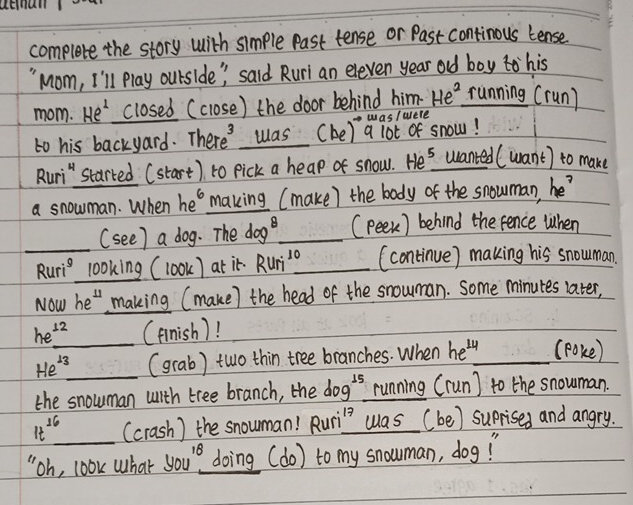 complete the story with simple Past tense or Past continous tense
"Mom, I'll Play outside", said Ruri an eleven year old boy to his
mom. He¹ closed (close) the door behind him. He² running (run)
to his backyard. There³ was (be) → was/were a lot of snow!
Ruri⁴ started (start) to pick a heap of snow. He⁵ wanted (want) to make
a snowman. When he⁶ making (make) the body of the snowman, he⁷
______ (see) a dog. The dog⁸ ______ (peek) behind the fence when
Ruri⁹ looking (look) at it. Ruri¹⁰ ______ (continue) making his snowman.
Now he¹¹ making (make) the head of the snowman. Some minutes later,
he¹² ______ (finish)!
He¹³ ______ (grab) two thin tree branches. When he¹⁴ ______ (poke)
the snowman with tree branch, the dog¹⁵ running (run) to the snowman.
It¹⁶ ______ (crash) the snowman! Ruri¹⁷ was (be) suprised and angry.
"Oh, look what you¹⁸ doing (do) to my snowman, dog!"